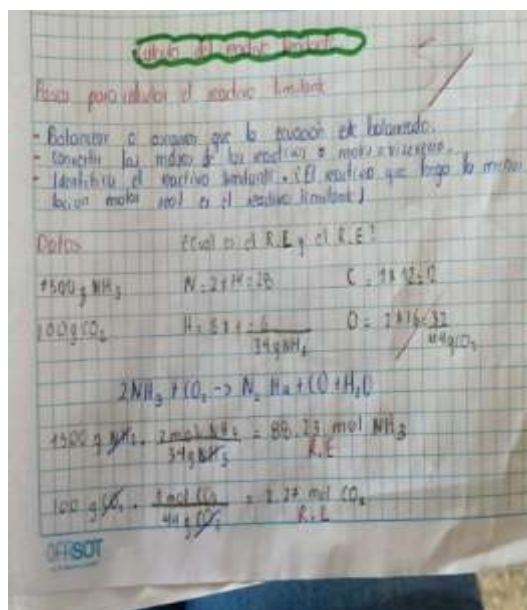 Calculo del reactivo limitante
Pasos para calcular el reactivo limitante
- Balancear o asegurar que la ecuación esté balanceada.
- Convertir las masas de los reactivos a moles
- Identificar el reactivo limitante. (El reactivo que tenga la menor
molar es el reactivo limitante)
Datos ¿Cual es el R.L y el R.E?
1500 g NH3 N = 2 = 28 C = 12 = 12
100 g CO2 H = 6 = 6 O = 2 16 = 32
34g NH3 44g CO2
2NH3 + CO2 -> N2 H4 + CO + H2O
1500 g NH3 . 2 mol NH3 / 34g NH3 = 88.23 mol NH3
R.E
100 g CO2 . 1 mol CO2 / 44 g CO2 = 2.27 mol CO2
R.L
OFFISOT